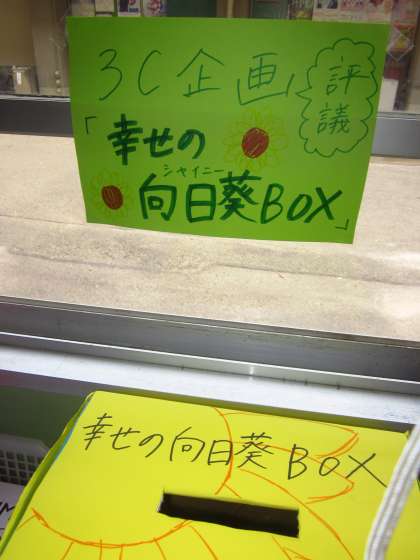 3C企画
評議
「幸せの
シャイニー
向日葵BOX」
幸せの向日葵BOX